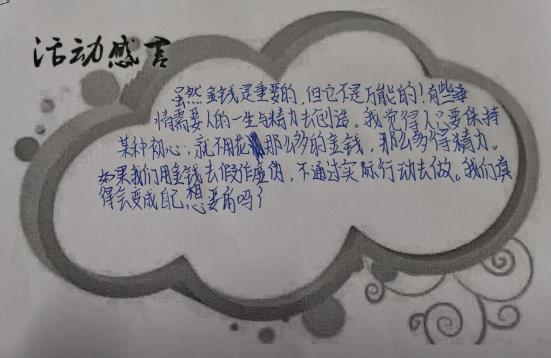 活动感言
虽然金钱是重要的，但它不是万能的！有些事
情需要人的一生与精力去创造。我觉得人只要保持
某种初心，就不用花那么多的金钱，那么多得精力。
如果我们用金钱去假作虚伪，不通过实际行动去做。我们真
得会变成自己想要的吗？